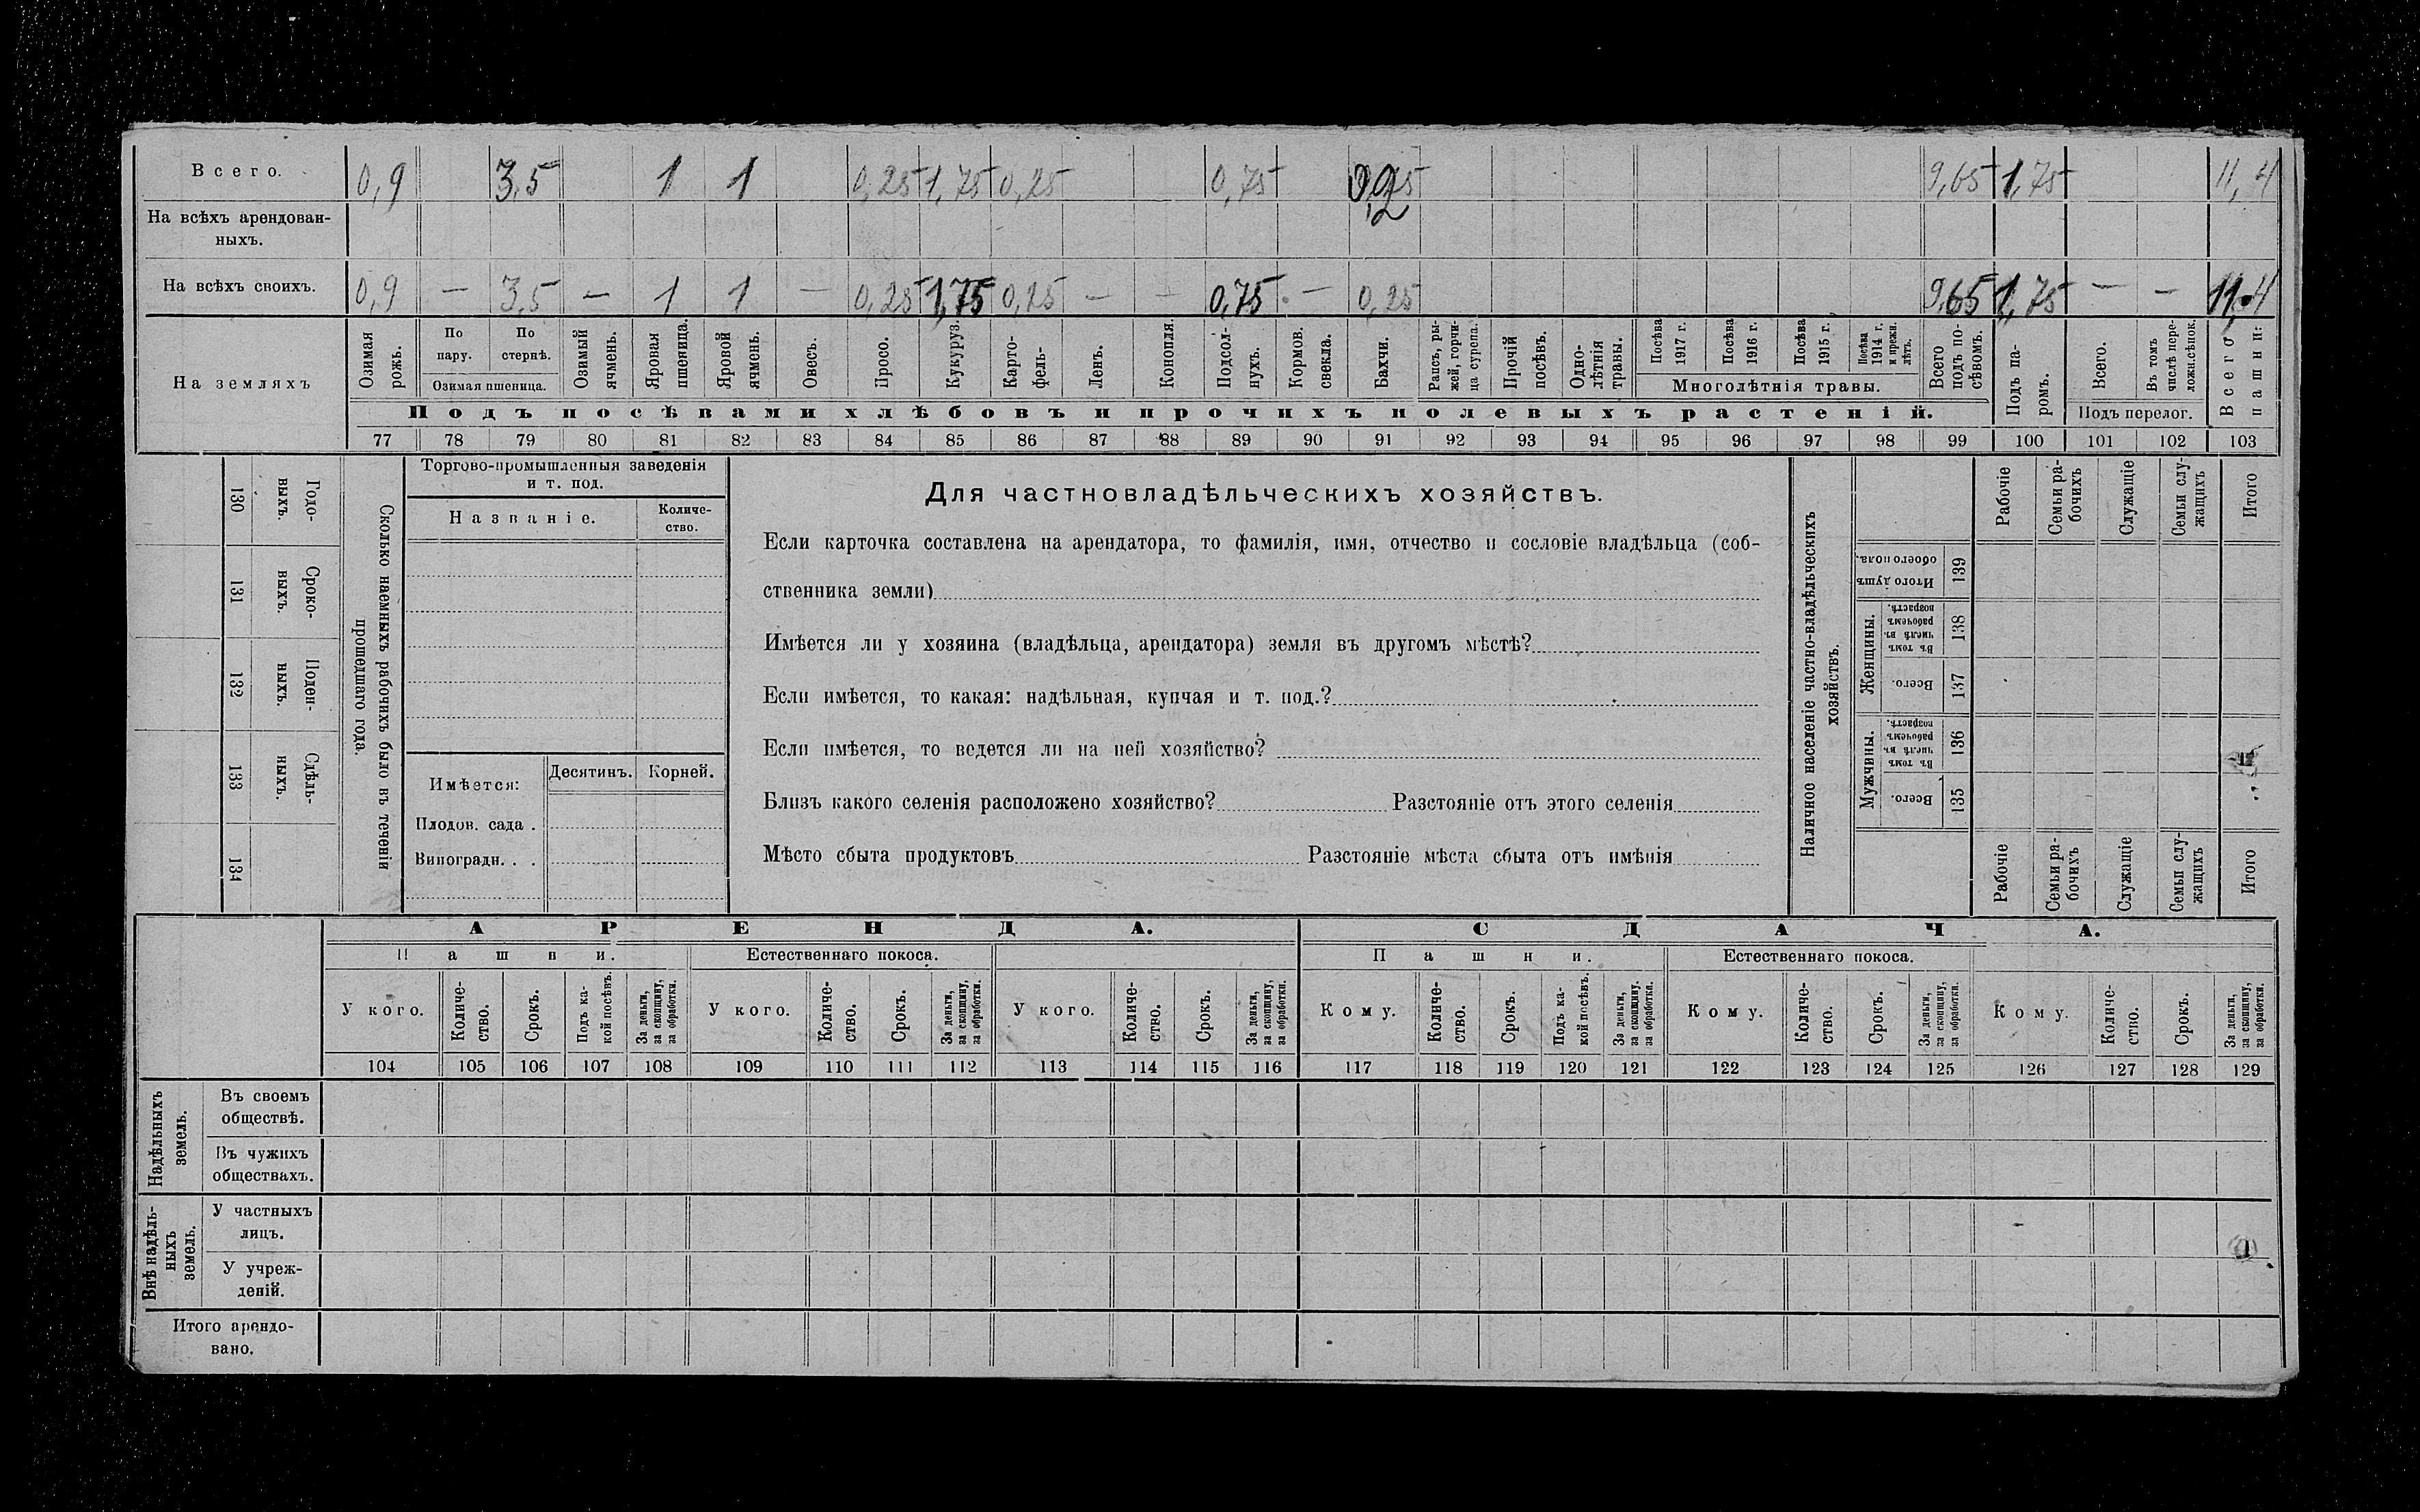 Всего. 0,9 3,5 1 1 0,25 1,75 0,25 0,75 9,65 1,75 11,4
На всѣхъ арендован-
ныхъ.
На всѣхъ своихъ. 0,9 — 3,5 — 1 1 — 0,25 1,75 0,25 — — 0,75 — 0,25 9,65 1,75 — — 11,4
На земляхъ
Озимая рожь.
По пару.
По стернѣ.
Озимая пшеница.
Озимый ячмень.
Яровая пшеница.
Яровой ячмень.
Овесъ.
Просо.
Кукуруз.
Карто-
фель-
Ленъ.
Конопля.
Подсол-
нухъ.
Кормов. свекла.
Бахчи.
Рапсъ, ры-
жей, горчи-
ца сурепа.
Прочій посѣвъ.
Одно-
лѣтнія
травы.
Посѣва 1917 г.
Посѣва 1916 г.
Посѣва 1915 г.
Посѣва 1914 г. и прежн. лѣтъ.
Многолѣтнія травы.
Всего подъ по-
сѣвомъ.
Подъ па-
ромъ.
Всего.
Въ томъ числѣ пере-
ложн.сѣнок.
Подъ перелог.
Всего пашни:
Подъ посѣвами хлѣбовъ и прочихъ полевыхъ растеній.
77 78 79 80 81 82 83 84 85 86 87 88 89 90 91 92 93 94 95 96 97 98 99 100 101 102 103
130 Годо-
ныхъ.
131 Сроко-
ныхъ.
132 Поден-
ныхъ.
133 Сдѣль-
ныхъ.
134
Сколько наемныхъ рабочихъ было въ теченіи
прошедшаго года.
Торгово-промышленныя заведенія
и т. под.
Названіе.
Количе-
ство.
Имѣется:
Десятинъ. Корней.
Плодов. сада .
Виноградн. . .
Для частновладѣльческихъ хозяйствъ.
Если карточка составлена на арендатора, то фамилія, имя, отчество и сословіе владѣльца (соб-
ственника земли)
Имѣется ли у хозяина (владѣльца, арендатора) земля въ другомъ мѣстѣ?
Если имѣется, то какая: надѣльная, купчая и т. под.?
Если имѣется, то ведется ли на ней хозяйство?
Близъ какого селенія расположено хозяйство? Разстояніе отъ этого селенія
Мѣсто сбыта продуктовъ Разстояніе мѣста сбыта отъ имѣнія
Наличное населеніе частно-владѣльческихъ
хозяйствъ.
Рабочіе
Семьи ра-
бочихъ
Служащіе
Семьи слу-
жащихъ
Итого
Итого душъ обоего пола. 139
Женщины.
Въ томъ числѣ въ рабочемъ возрастѣ. 138
Всего. 137
Мужчины.
Въ томъ числѣ въ рабочемъ возрастѣ. 136
Всего. 135
Рабочіе
Семьи ра-
бочихъ
Служащіе
Семьи слу-
жащихъ
Итого
АРЕНДА. СДАЧА.
Пашни. Естественнаго покоса. Пашни. Естественнаго покоса.
У кого.
Количе-
ство.
Срокъ.
Подъ ка-
кой посѣвъ.
За деньги,
за скопщину,
за обработки.
У кого.
Количе-
ство.
Срокъ.
За деньги,
за скопщину,
за обработки.
У кого.
Количе-
ство.
Срокъ.
За деньги,
за скопщину,
за обработки.
Кому.
Количе-
ство.
Срокъ.
Подъ ка-
кой посѣвъ.
За деньги,
за скопщину.
за обработки.
Кому.
Количе-
ство.
Срокъ.
За деньги,
за скопщину,
за обработки.
Кому.
Количе-
ство.
Срокъ.
За деньги,
за скопщину,
за обработки.
104 105 106 107 108 109 110 111 112 113 114 115 116 117 118 119 120 121 122 123 124 125 126 127 128 129
Надѣльныхъ
земель.
Въ своемъ
обществѣ.
Въ чужихъ
обществахъ.
Внѣ надѣль-
ныхъ
земель.
У частныхъ
лицъ.
У учреж-
деній.
Итого арендо-
вано.